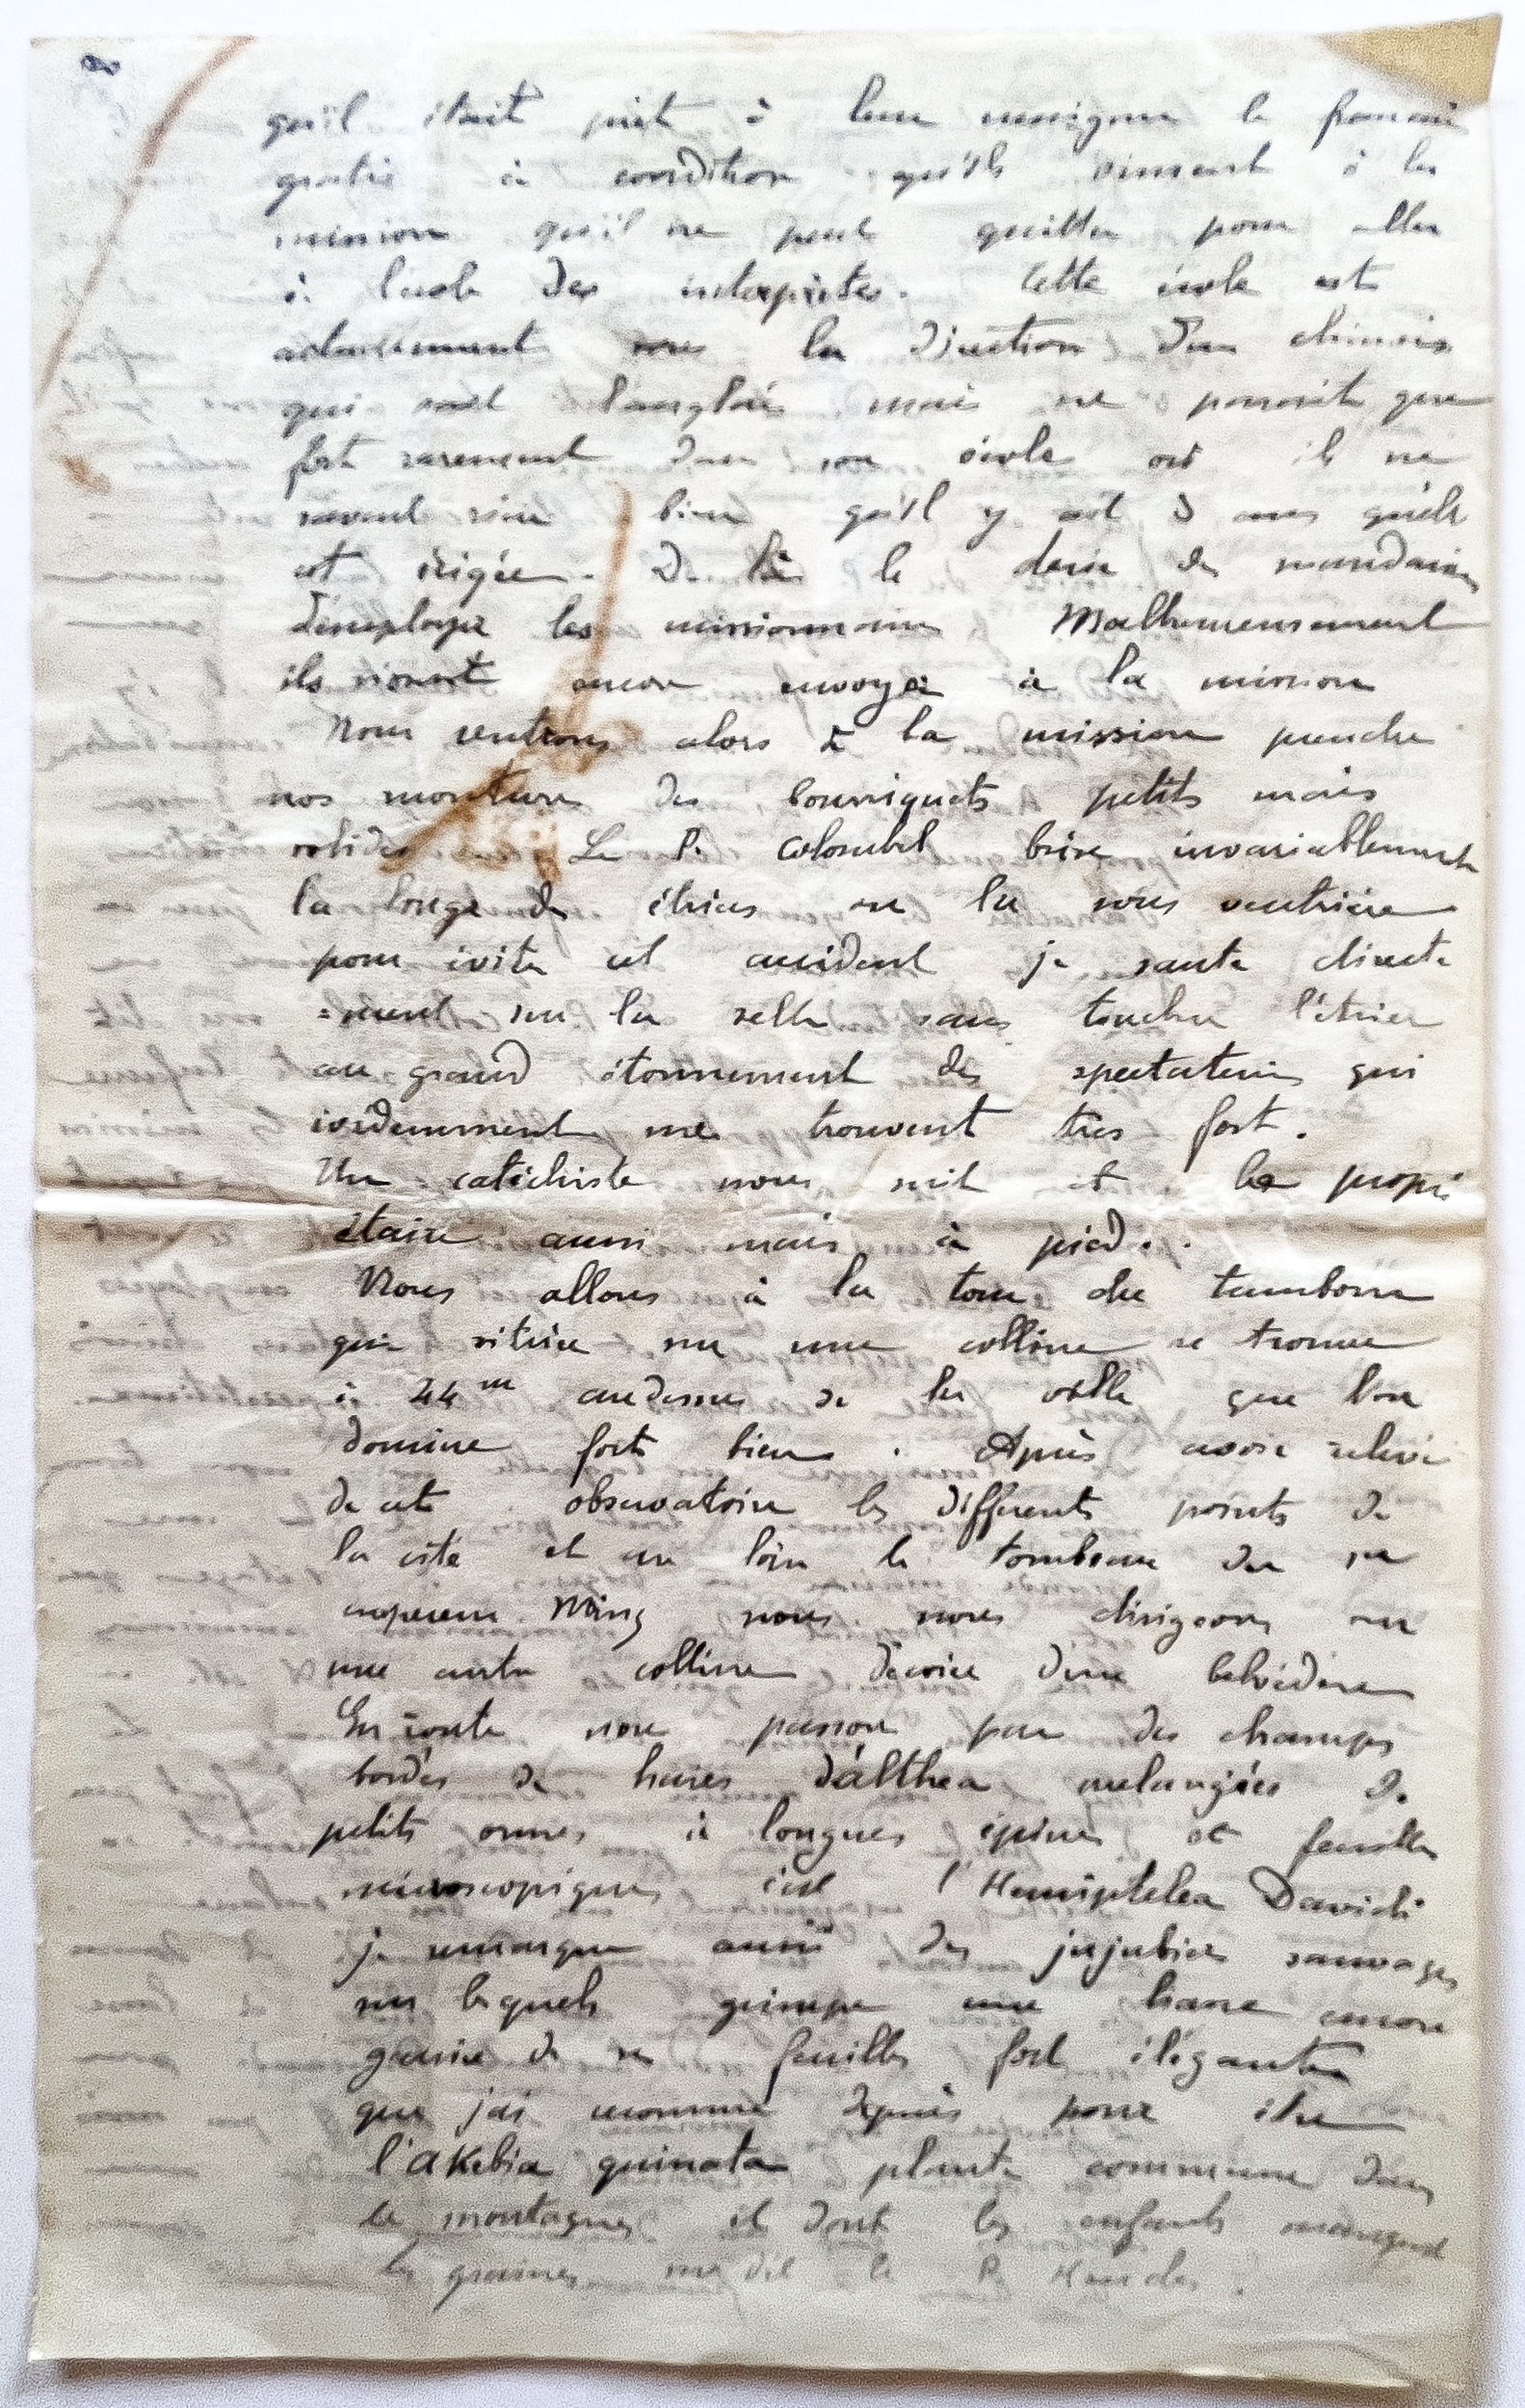 8
qu'il était prêt à leur enseigner le français
gratis à condition qu'ils vinssent à la
mission qu'il ne peut quitter pour aller
à l'ecole des interprètes. Cette école est
actuellement sous la direction d'un chinois
qui sait l'anglais mais ne parait que
fort rarement dans son école où ils ne
savent rien bien qu'il y ait 3 ans qu'elle
est érigée. De là le desir des mandarins
d'employer les missionnaires Malheureusement
ils n'ont encore envoyé à la mission
Nous rentrons alors à la mission prendre
nos montures des bourriquets petits mais
solides Le P. Colombel brise invariablement
la longe des étriers ou la sous ventrière
pour éviter cet accident je saute directe
=ment sur la selle sans toucher l'étrier
au grand étonnement des spectateurs qui
évidemment me trouvent très fort.
Un catéchiste nous suit et le propri
étaire aussi mais à pied.
Nous allons à la tour du tambour
qui située sur une colline se trouve
à 44 m au dessus de la ville que l'on
domine fort bien. Après avoir relevé
de cet observatoire les différents points de
la cité et au loin le tombeau du 1er
empereur Ming nous nous dirigeons sur
une autre colline décorée d'un belvédère
En route nous passons par des champs
bordés de haies d'althea melangées de
petits ormes à longues épines et feuilles
microscopiques c'est l'Hemiptelea Davidi
je remarque aussi des jujubiers sauvages
sur lesquels grimpe une liane encore
garnie de ses feuilles fort élégantes
que j'ai reconnue depuis pour être
l'Akebia quinata plante commune dans
les montagnes et dont les enfants mangent
les graines me dit le P.